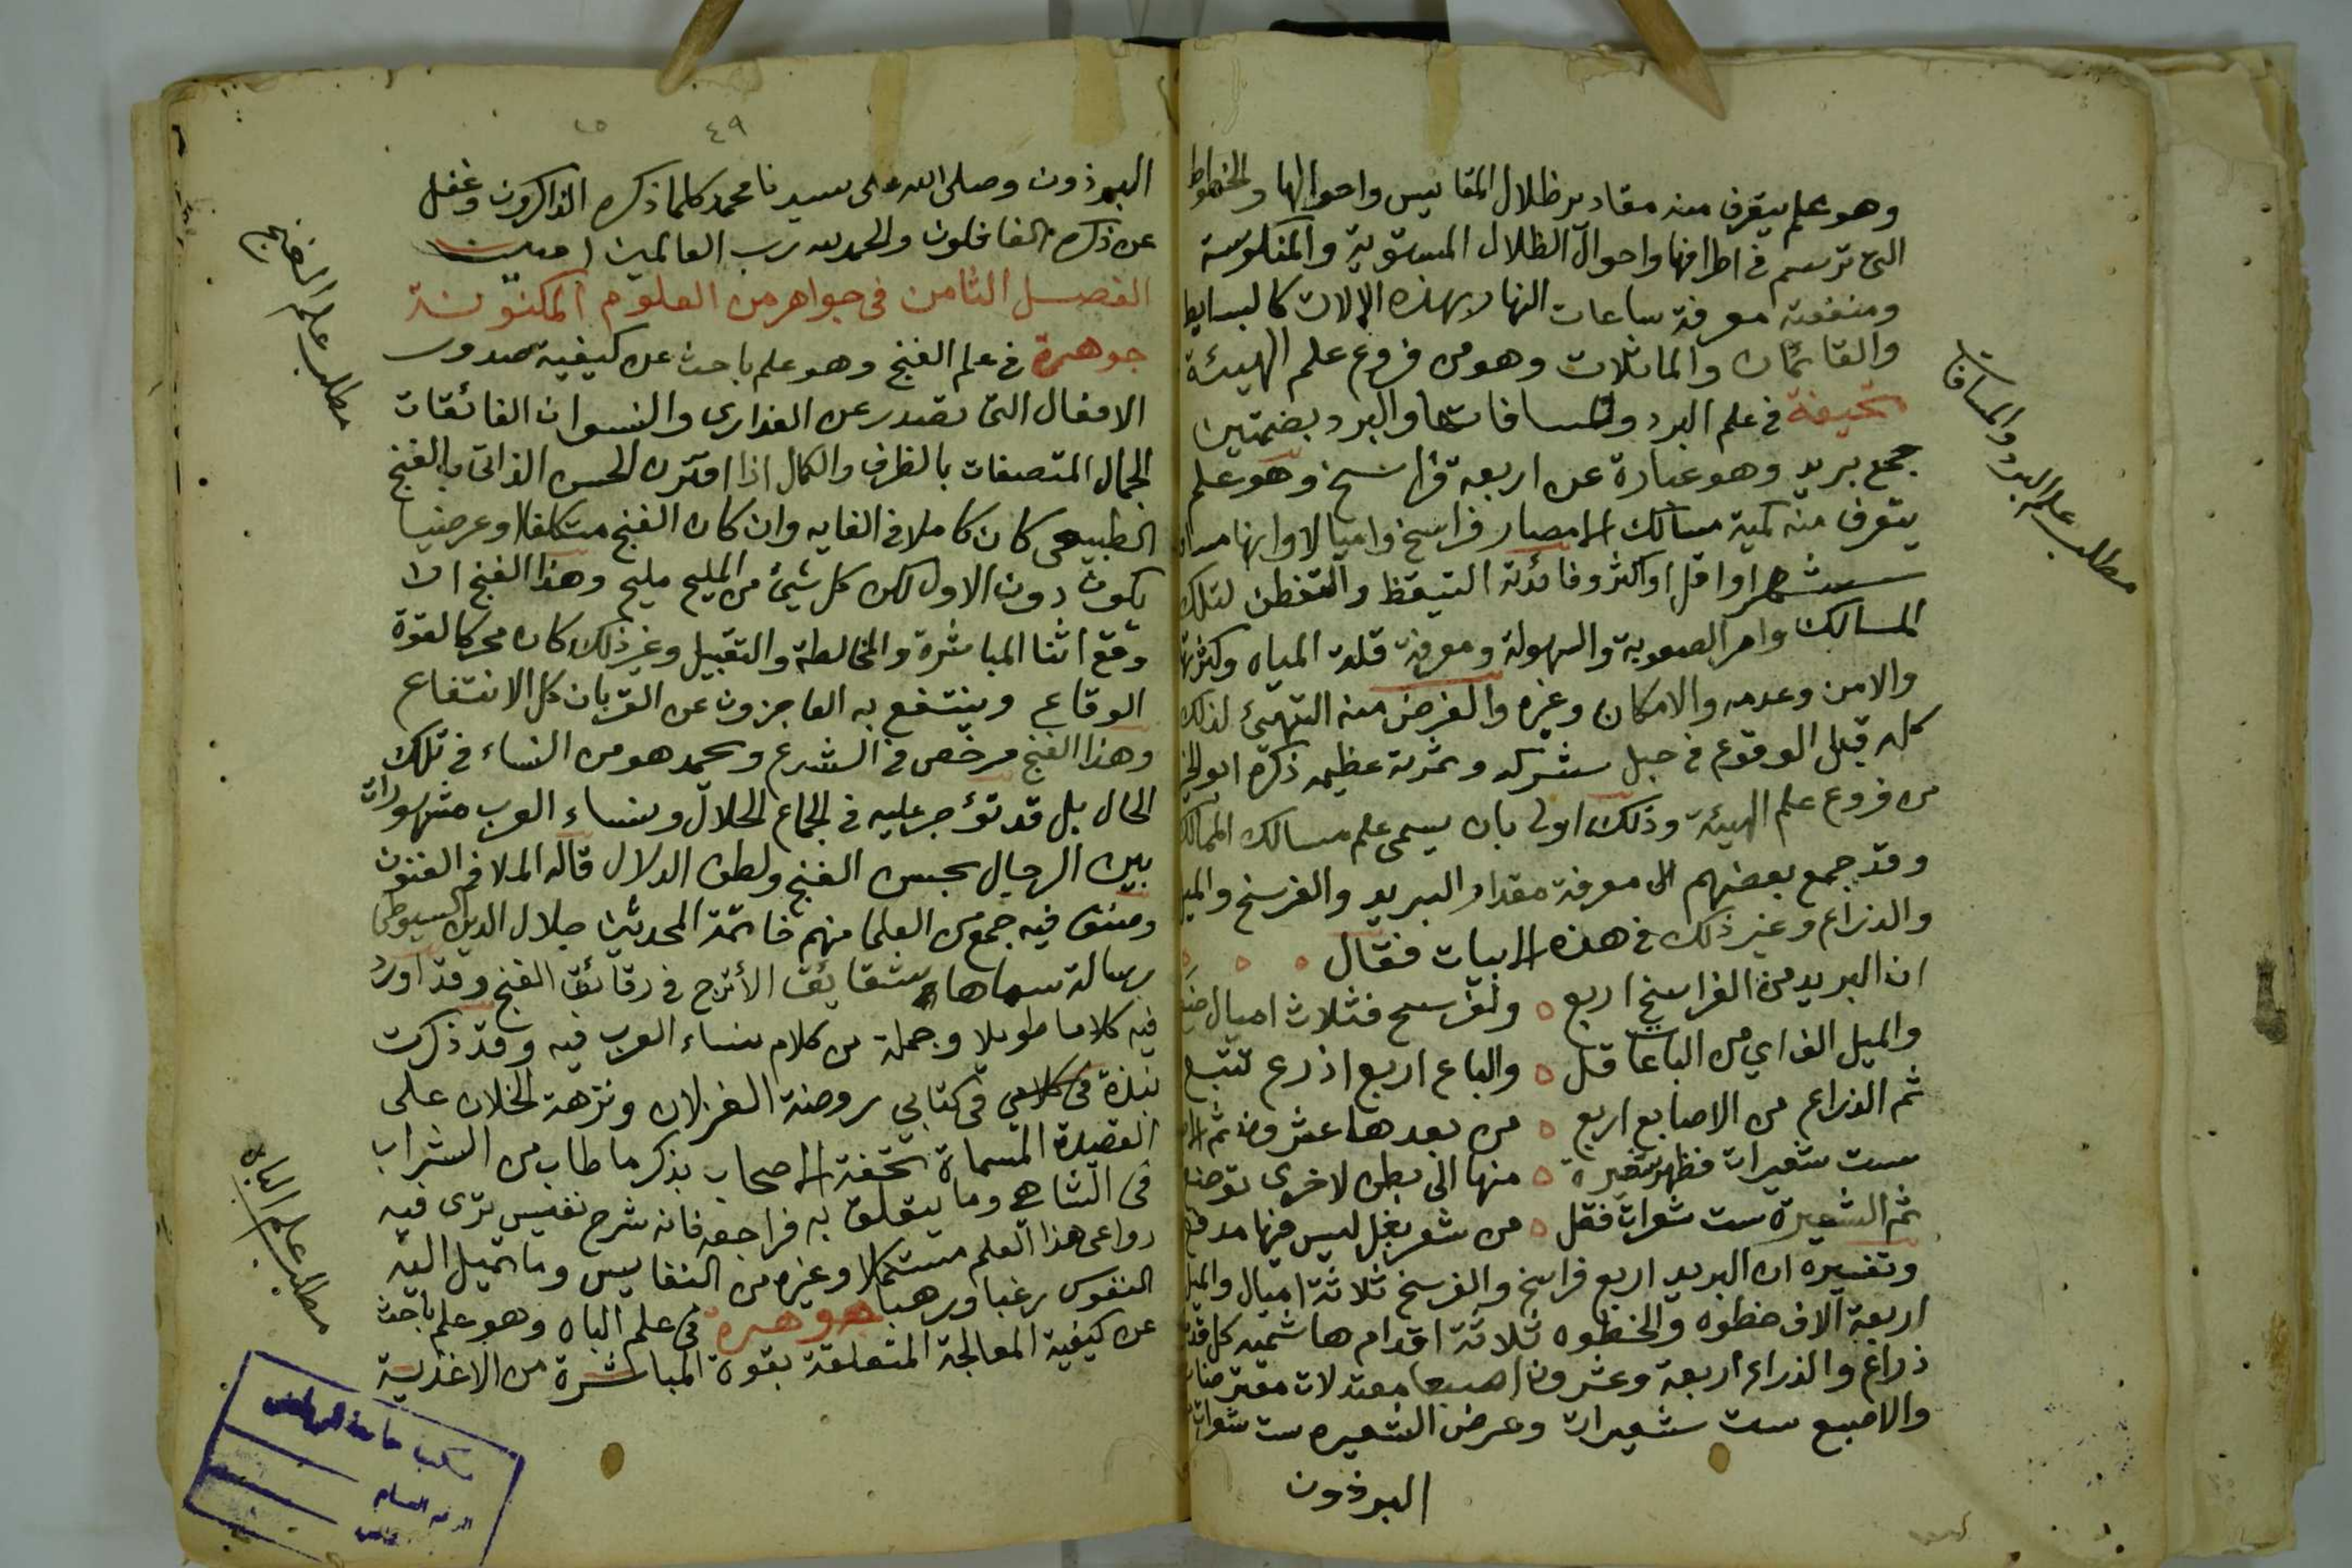 وهو علم يتعرف منه مقادير ظلال المقاييس واحوالها والخطوط
التى ترسم فى اطرافها واحوال الظلال المستوية والمنكوسة
ومنفعته معرفة ساعات النهار بهذه الالات كالبسايط
والقائمات والمائلات وهو من فروع علم الهيئة
تحيفة فى علم البرد ومسافاتها والبرد بضمتين
جمع بريد وهو عبارة عن اربعة فراسخ وهو علم
يتعرف منه كمية مسالك الامصار فراسخ واميالا وانها
شهر او اقل او اكثر وفائدته التيقظ والتفطن لتلك
المسالك وامر الصعوبة والسهولة ومعرفة قلة المياه وكثرتها
والامن وعدمه والامكان وغيره والغرض منه التهيئ لذلك
كله قبل الوقوع فى حبل شركه وثمرته عظيمه ذكره ابو الخير
من فروع علم الهيئة وذلك اولى بان يسمى علم مسالك الممالك
وقد جمع بعضهم الى معرفة مقدار البريد والفرسخ والميل
والذراع وغير ذلك فى هذه الابيات فقال
ان البريد من الفراسخ اربع ولفرسخ فثلاث اميال
والميل الف اي من الباعات قل والباع اربع اذرع تتبع
ثم الذراع من الاصابع اربع من بعدها عشرون ثم
ست شعيرات فظهر شعيرة منها الى بطن لاخرى توضع
ثم الشعيرة ست شعرات فقل من شعر بغل ليس فيها مدفع
وتفسيره ان البريد اربع فراسخ والفرسخ ثلاثة اميال والميل
اربعة آلاف خطوه والخطوه ثلاثة اقدام هاشميه كل قدم
ذراع والذراع اربعة وعشرون اصبعا معتدلات معترضات
والاصبع ست شعيرات وعرض الشعيره ست شعرات
البرذون
مطلب علم البرد والمسافات
٤٩
البرذون وصلى الله على سيدنا محمد كلما ذكره الذاكرون وغفل
عن ذكره الغافلون والحمد لله رب العالمين امين
الفصل الثامن فى جواهر من العلوم المكنونة
جوهرة فى علم الغنج وهو علم باحث عن كيفية صدور
الافعال التى تصدر عن العذارى والنسوان الفائقات
الجمال المتصفات بالظرف والكمال اذا اقترن الحسن الذاتى بالغنج
الطبيعى كان كاملا فى الغايه وان كان الغنج متكلفا او عرضيا
يكون دون الاول لكن كل شيئ من المليح مليح وهذا الغنج اذا
وقع اثنا المباشرة والمخالطة والتقبيل وغير ذلك كان محركا لقوة
الوقاع وينتفع به العاجزون عن القربان كل الانتفاع
وهذا الغنج مرخص فى الشرع ويحمد هو من النساء فى تلك
الحال بل قد تؤجر عليه فى الجماع الحلال ونساء العرب مشهورات
بين الرجال بحسن الغنج ولطف الدلال قاله الملا فى الفنون
وصنف فيه جمع من العلما منهم خاتمة المحدثين جلال الدين السيوطى
رسالة سماها شقايق الأترج فى رقائق الغنج وقد اورد
فيه كلاما طويلا وجملة من كلام نساء العرب فيه وقد ذكرت
نبذة فى كلامي فى كتابي روضة الغزلان ونزهة الخلان على
القصيدة المسماة تحفة الاصحاب بذكر ما طاب من الشراب
فى الشاهي وما يتعلق به فراجعه فانه شرح نفيس ترى فيه
دواعى هذا العلم مستكملا وغيره من النفايس وما تميل اليه
النفوس رغبا ورهبا جوهرة فى علم الباه وهو علم باحث
عن كيفية المعالجة المتعلقة بقوة المباشرة من الاغذية
مطلب علم الغنج
مطلب علم الباه
مكتبة جامعة الرياض